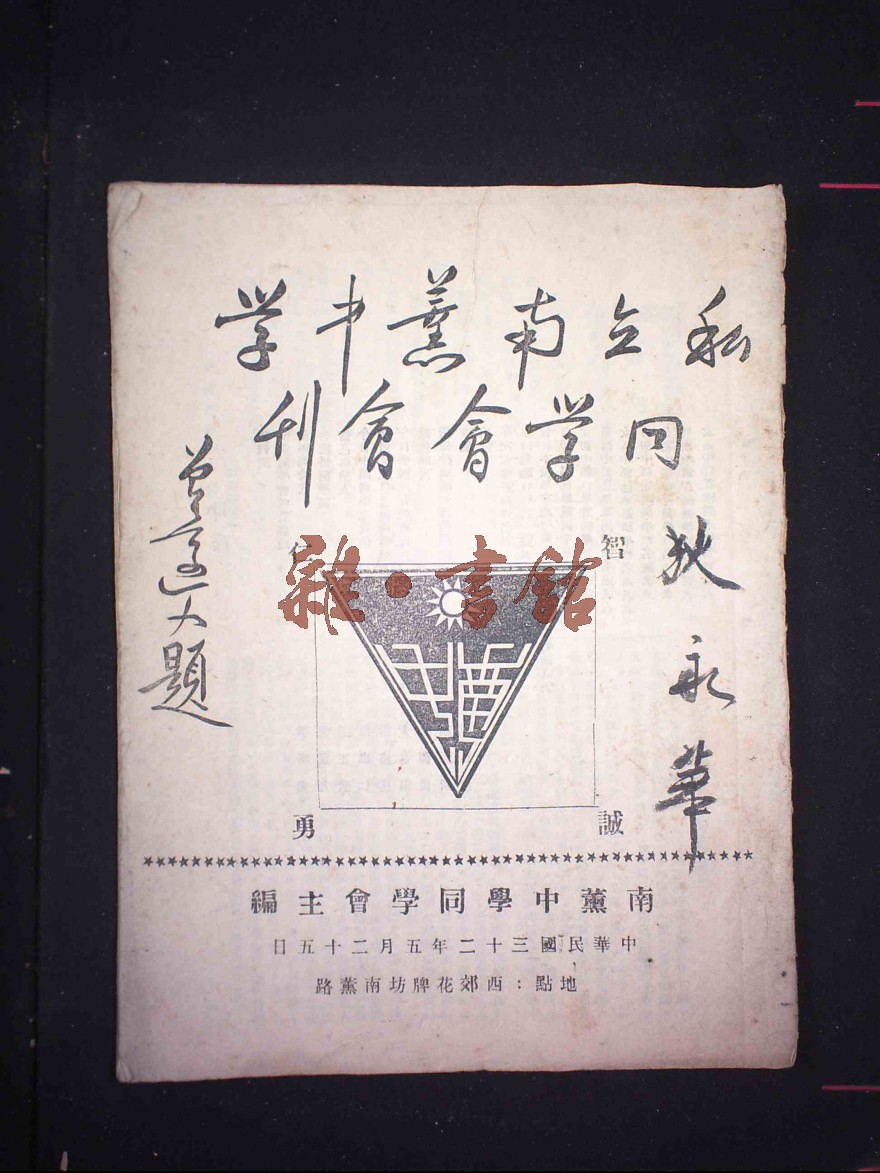 私立南薰中学
同学會會刊
狄永華
題
智
仁
雜·書館
誠
勇
南薰中學同學會主編
中華民國三十二年五月二十五日
地點：西郊花牌坊南薰路